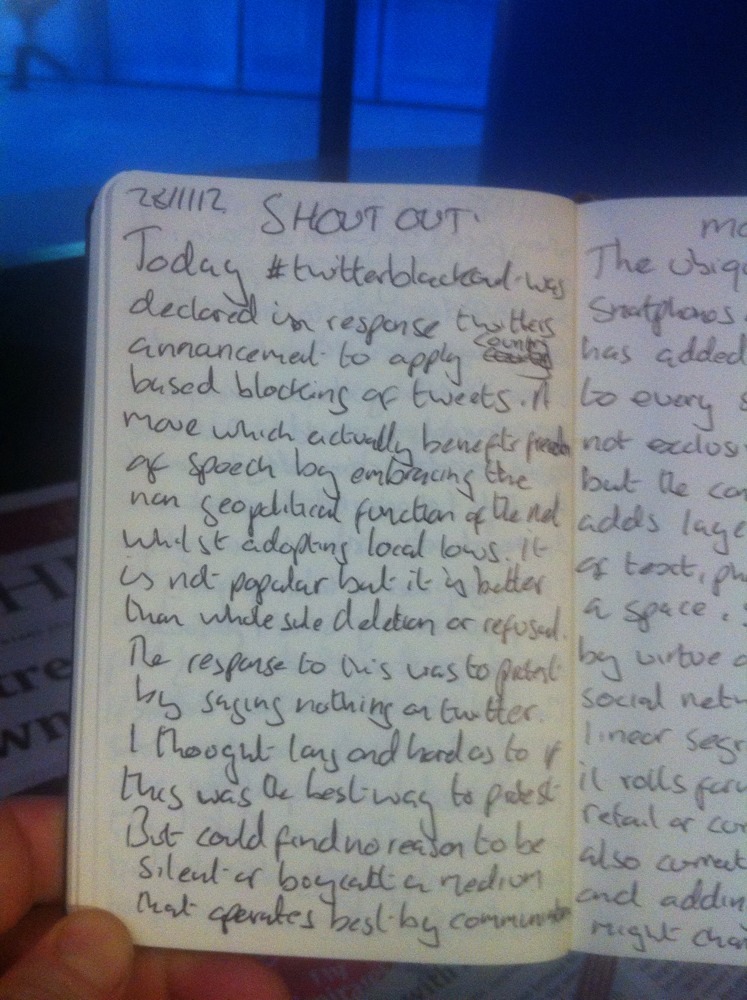 28/1/12 SHOUT OUT.
Today #twitterblackout was
declared in response twitters
country
annancement to apply
based blocking of tweets. A
move which actually benefits freedom
of speech by embracing the
non geopolitical function of the net
whilst adopting local laws. It
is not popular but it is better
than whole sale deletion or refusal.
The response to this was to protest
by saying nothing on twitter.
I thought long and hard as to if
this was the best way to protest
But could find no reason to be
silent or boycott a medium
that operates best by communication
The ubiq
Smartphones
has added
to every s
not exclus
but the con
adds laye
of text, ph
a space.
by virtue o
social netw
linear segr
it rolls forw
retail or co
also connect
and addin
might chan